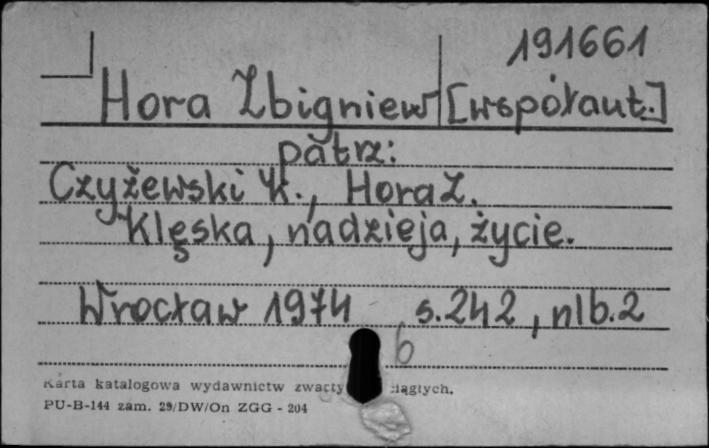 191661
Hora Zbigniew [współaut.]
patrz:
Czyżewski K., Hora Z.
Klęska, nadzieja, życie.
Wrocław 1974 s.242, nlb.2
6
Karta katalogowa wydawnictw
PU-B-144 zam. 29/DW/On ZGG - 204